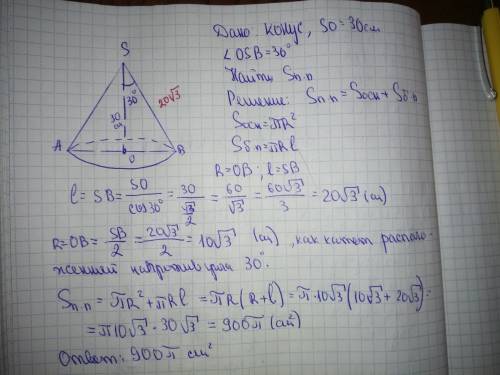 Дано: конус, SO = 30 см
∠OSB = 30°
Найти Sп.п
Решение: Sп.п = Sосн + Sб.п
Sосн = πR²
Sб.п = πRl
R = OB; l = SB
S
30°
20√3
30 см
A
O
B
l = SB = SO/cos30° = 30/(√3/2) = 60/√3 = 60√3/3 = 20√3 (см)
R = OB = SB/2 = 20√3/2 = 10√3 (см), как катет располо-
женный напротив угла 30°.
Sп.п = πR² + πRl = πR(R + l) = π·10√3(10√3 + 20√3) =
= π10√3 · 30√3 = 900π (см²)
Ответ: 900π см²